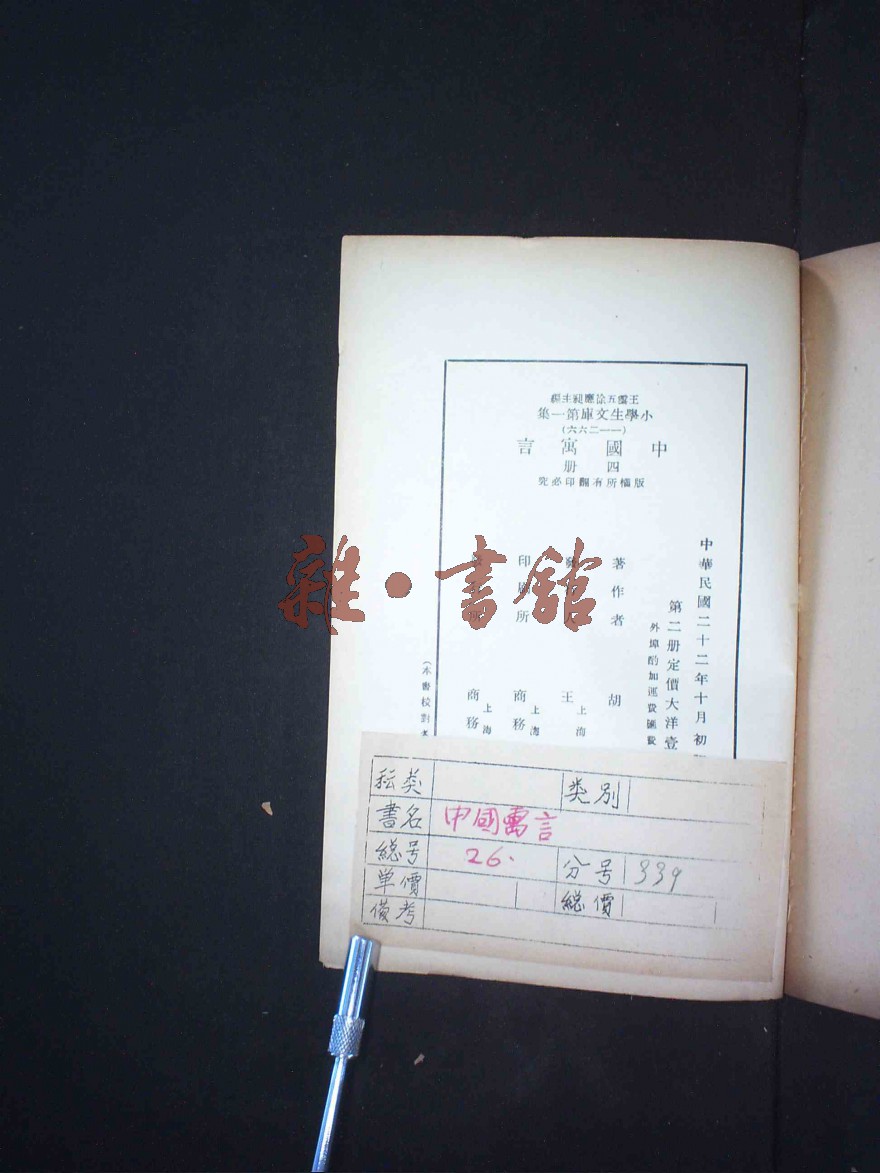 王雲五徐應昶主編
小學生文庫第一集
(一一二六六)
中國寓言
四册
版權所有翻印必究
中華民國二十二年十月初
第二册定價大洋壹
外埠酌加運費匯費
著作者 胡
發行人 王 上海
印刷所 商務 上海
發行所 商務 上海
(本書校對者
雜·書館
类别
書名 中國寓言
総号 26.
分号 339
単價
総價
俻考